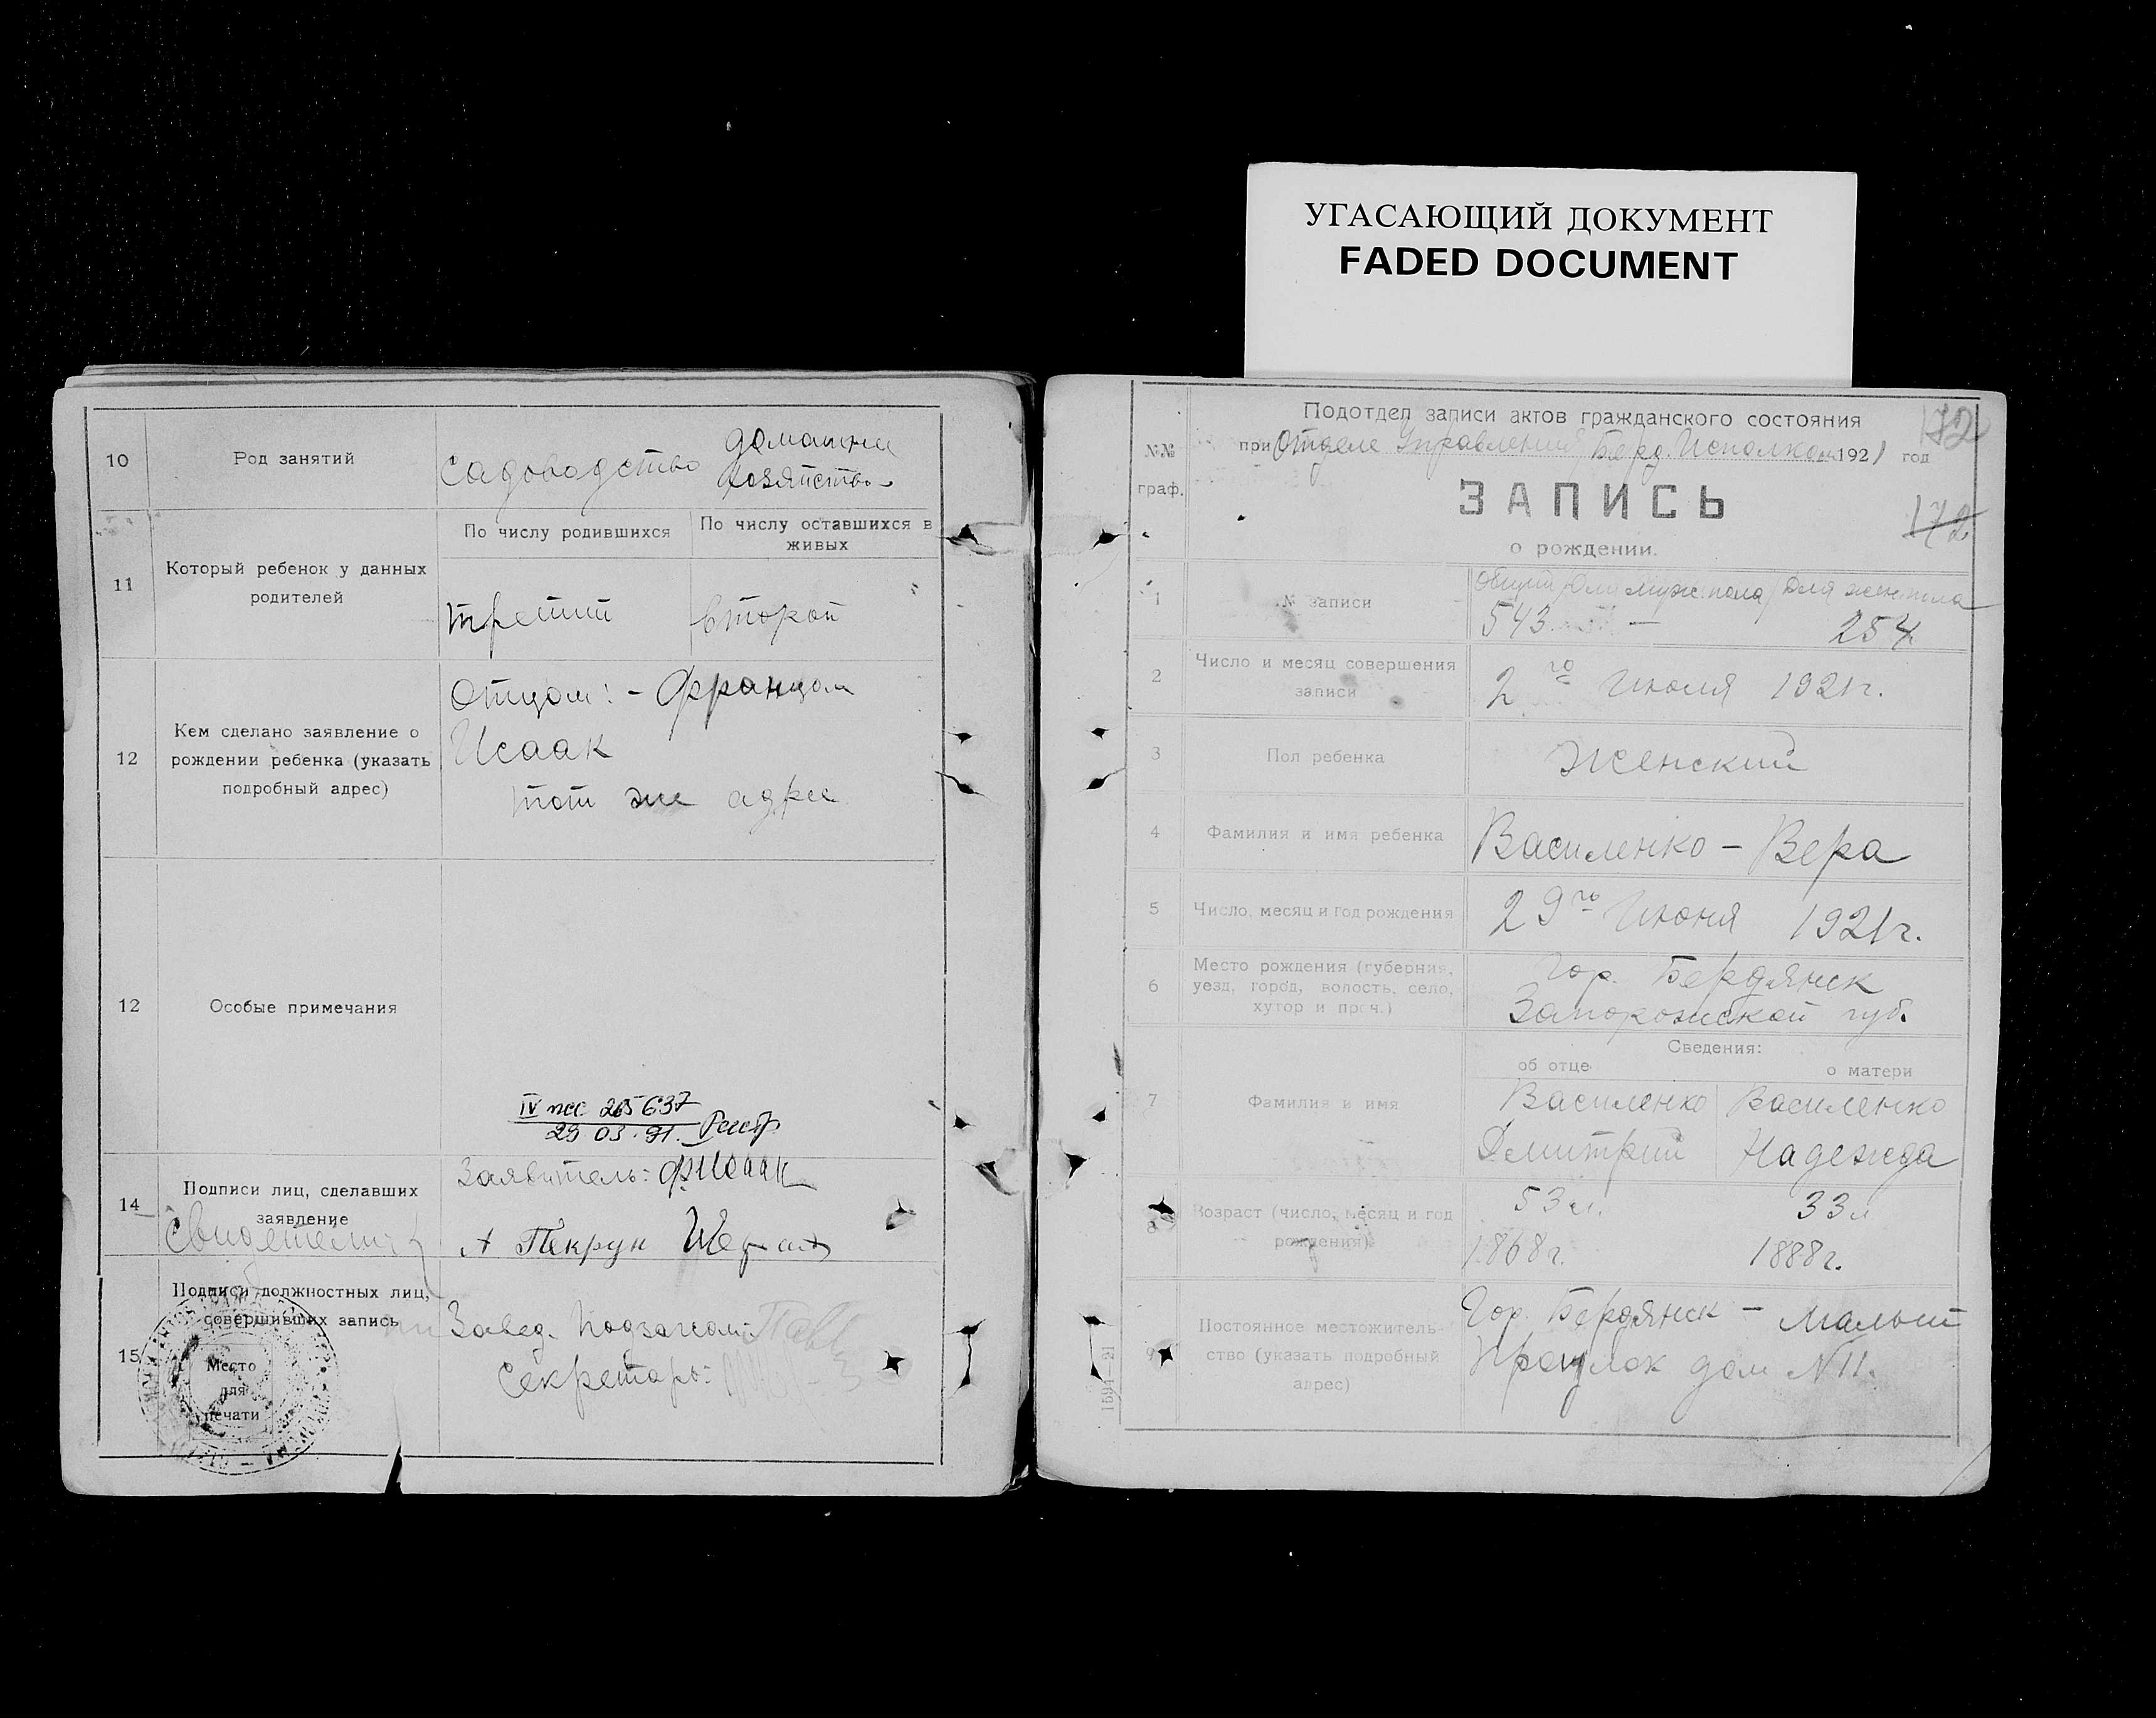 УГАСАЮЩИЙ ДОКУМЕНТ
FADED DOCUMENT
10
Род занятий
садоводство
домашнее
хозяйство
11
Который ребенок у данных
родителей
По числу родившихся
По числу оставшихся в
живых
третий
второй
12
Кем сделано заявление о
рождении ребенка (указать
подробный адрес)
Отцом: – Францом
Исаак
тот же адрес
12
Особые примечания
IV пес 265637
29 03. 91.
14
Подписи лиц, сделавших
заявление
Свидетели:
Заявитель: Ф.Исаак
А Пекрун
15
Подписи должностных лиц,
совершивших запись
Место
для
печати
Завед. Подзагсом:
Секретарь:
172
Подотдел записи актов гражданского состояния
№№
граф.
при Отделе Управления Берд. Исполкома 1921 год
ЗАПИСЬ
172
о рождении.
1
№ записи
Общий для муж. пола для жен. пола
543. — 254
2
Число и месяц совершения
записи
2го Июля 1921г.
3
Пол ребенка
Женский
4
Фамилия и имя ребенка
Василенко – Вера
5
Число, месяц и год рождения
29го Июня 1921г.
6
Место рождения (губерния,
уезд, город, волость, село,
хутор и проч.)
Гор. Бердянск
Запорожской губ.
Сведения:
об отце
о матери
7
Фамилия и имя
Василенко
Дмитрий
Василенко
Надежда
8
Возраст (число, месяц и год
рождения)
53 л.
1868г.
33 л
1888г.
9
Постоянное местожитель-
ство (указать подробный
адрес)
Гор. Бердянск – Малый
дом №11.
1594—21